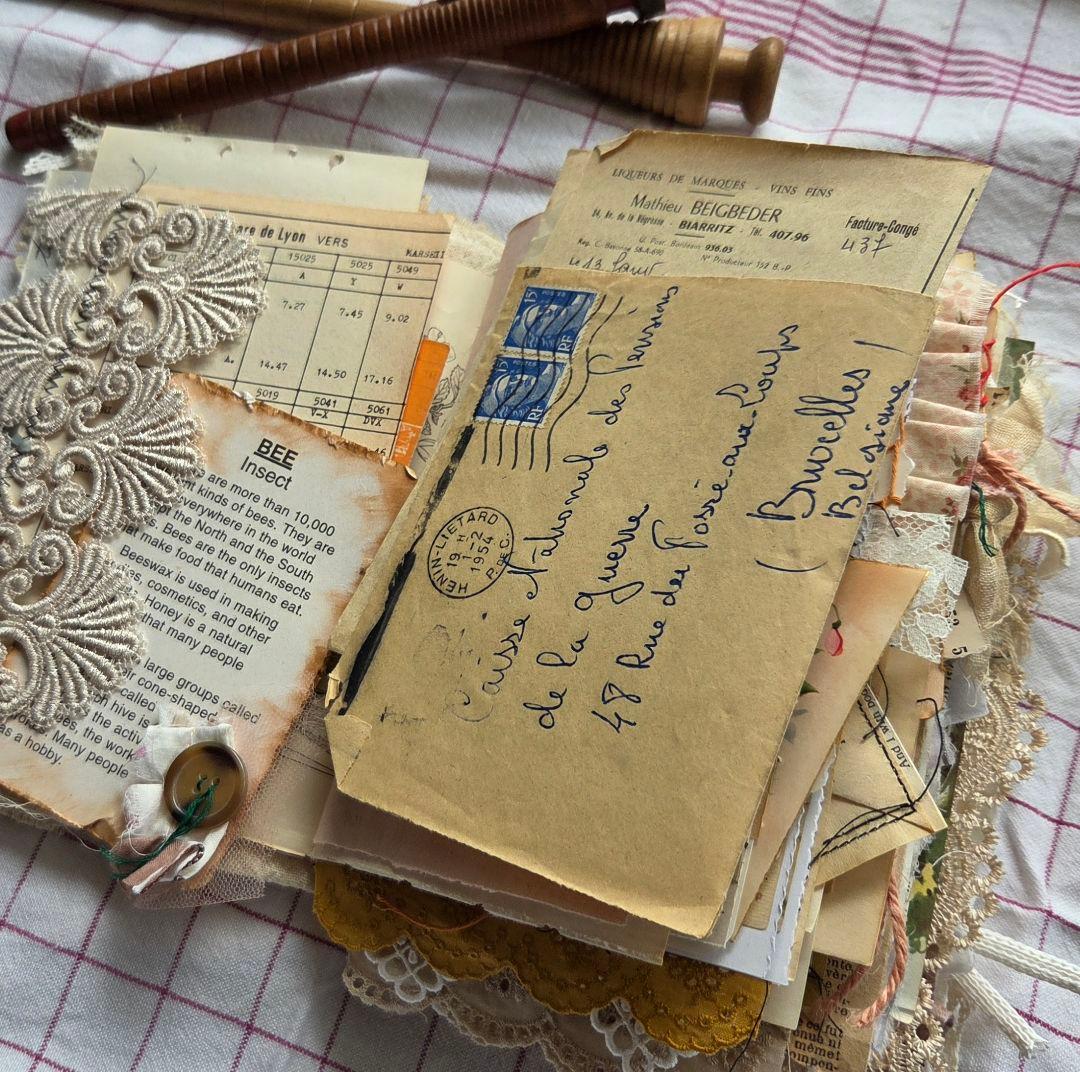 Gare de Lyon VERS MARSEI
15025 5025 5049
A Y W
7.27 7.45 9.02
A. 14.47 14.50 17.16
5019 5041 5061
V-X DVX
BEE
Insect
are more than 10,000
nt kinds of bees. They are
everywhere in the world
pt the North and the South
s. Bees are the only insects
at make food that humans eat.
Beeswax is used in making
es, cosmetics, and other
Honey is a natural
that many people
large groups called
ir cone-shaped
called
ch hive is
the activ
ees, the work
Many people
as a hobby.
LIQUEURS DE MARQUES - VINS FINS
Mathieu BEIGBEDER
84, Av. de la Négresse - BIARRITZ - Tél. 407.96
Facture-Congé
437
Reg. C. Bayonne 58-A-690 C. Post. Bordeaux 936.03
N° Producteur 152 B.-P.
Le 13
15 POSTES RF
15 POSTES RF
HENIN-LIETARD
19 H
1-2
1954
P. DEC.
Caisse Nationale des Pensions
de la guerre
48 Rue des Fossé-aux-Loups
(Bruxelles)
Belgique
5
And I wish you